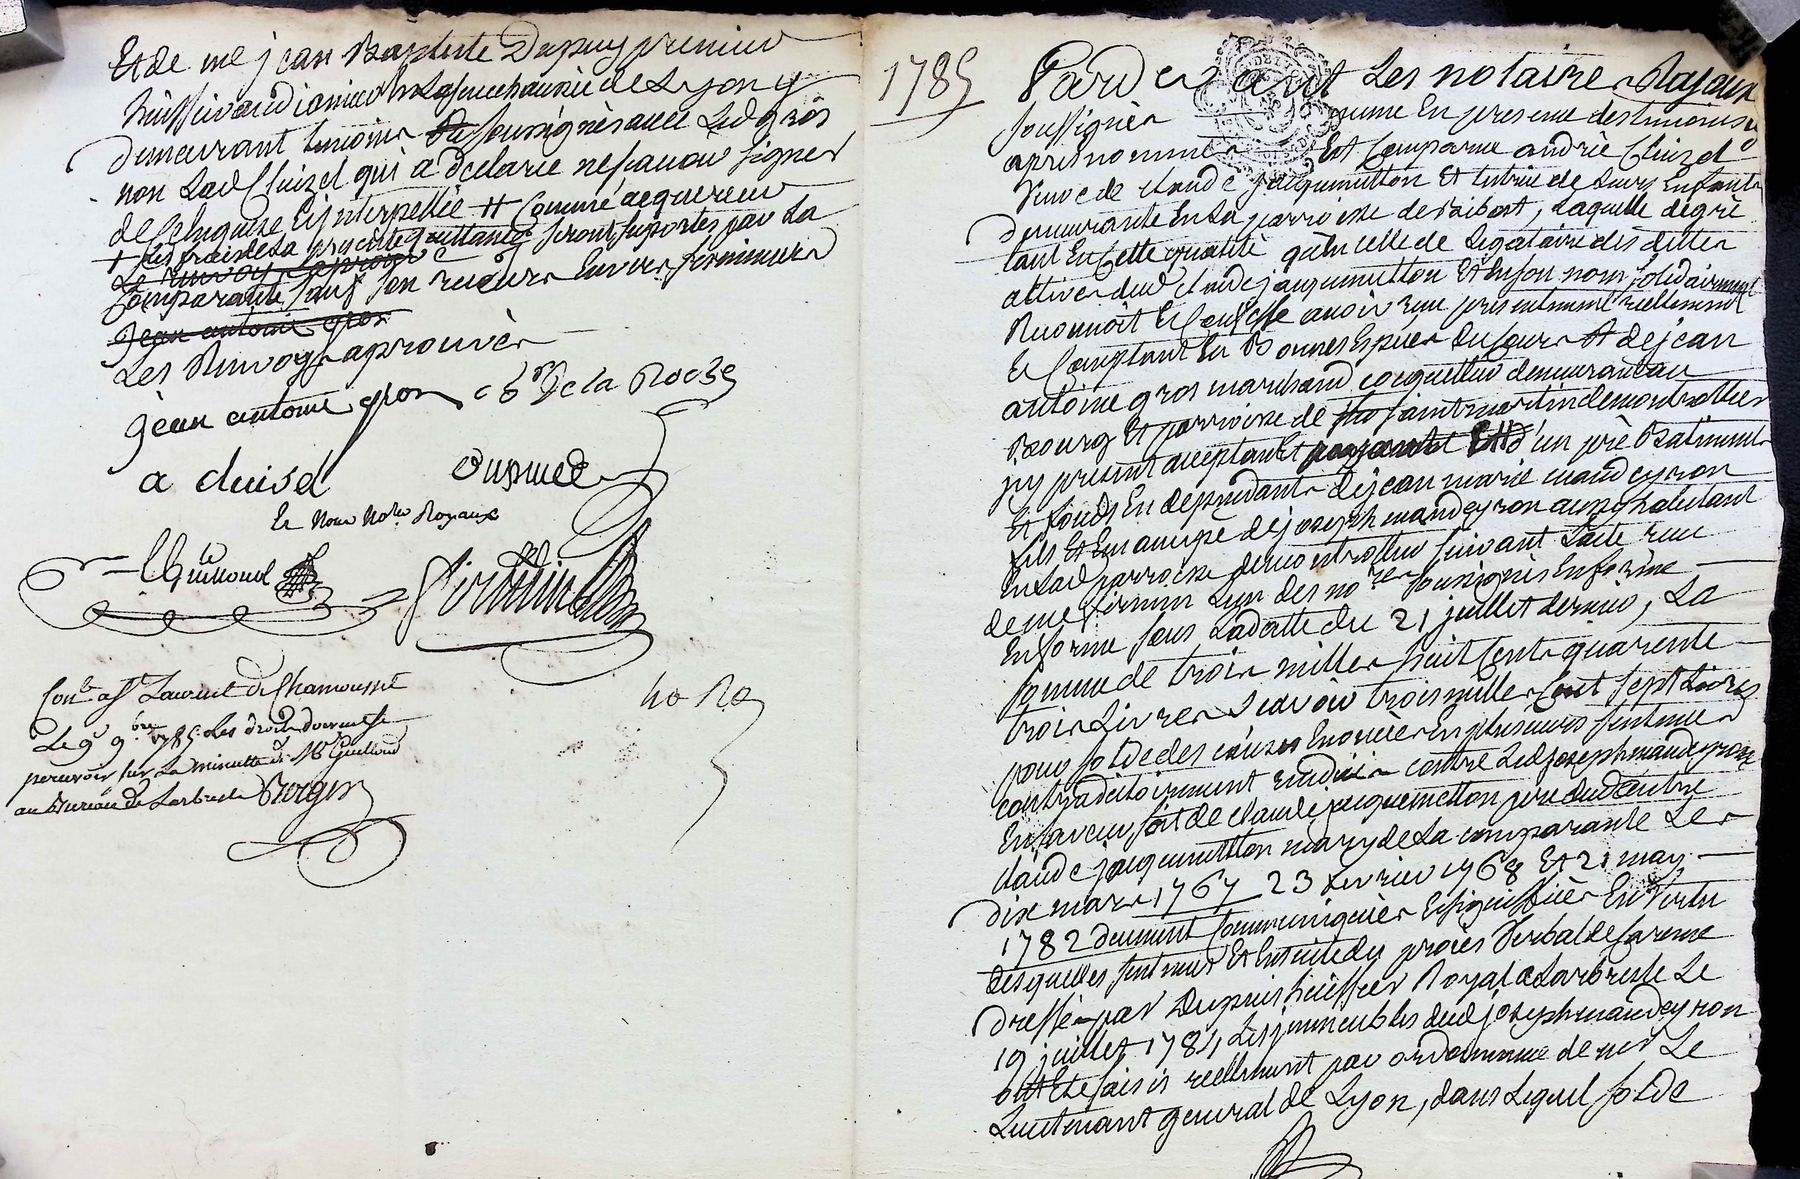 Et de me jean Baptiste Dupuy premier
huissier audiancier en la senechaussée de Lyon y
demeurant temoins soussignés avec Led gros
non Lad Cluizel qui a declaré ne savoir signer
de ce enquise et interpellée ++ comme acquereur
+ les frais de la presente quittance seront suportés par la
comparante sauf son recours envers
jean antoine gros
Les Renvoys aprouvés
jean antoine gros ch de la Roche
a cluisel Dupuis
Et Nous Not.res Royaux
Guillioud
Con.lé a St Laurent de Chamousset
Le 9 9bre 1785 Les droits
percevoir sur La minutte de Me Guilloud
au Bureau de Larbresle
1785
Pardevant Les notaires Royaux
soussignés en presence des temoins cy
apres nommés Est comparue andrée Cluizel
Veuve de claude jacquemetton Et tutrice de leurs Enfants
demeurante En la parroisse de , laquelle de gré
tant En cette qualité qu'en celle de Legataire des dettes
actives dud claude jacquemetton Et En son nom solidairement
Reconnoit Et Confesse avoir reçu presentement reellement
Et Comptant En Bonnes Espèces du cours de jean
antoine gros marchand demeurant au
Bourg Et parroisse de saint martin de
icy present acceptant Et d'un pré Batiments
Et fonds En dependants de jean marie maudeyron
fils Et Emancipé de joseph maudeyron aussy habitant
En lad parroisse de suivant l'acte reçu
de me L'un des no.res soussignés
En forme sous La datte du 21 juillet dernier, La
somme de trois milles huit Cents quarente
trois Livres scavoir trois milles Cent sept Livres
pour solde des causes Enoncées En plusieurs sentences
contradictoirement rendues contre Led joseph maudeyron
En faveur soit de claude jacquemetton pere dud autre
claude jacquemetton mary de La comparante Les
dix mars 1767 23 fevrier 1768 Et 21 may
1782 deument communiquées Et signiffiées En Vertu
desquelles sentences Et Ensuite du procès Verbal de Carence
dressé par Dupuis huissier Royal a Larbresle Le
19 juillet 1784 Les immeubles dud joseph maudeyron
ont Eté saisis reellement par ordonnance de mr Le
Lieutenant general de Lyon, dans Lequel solde